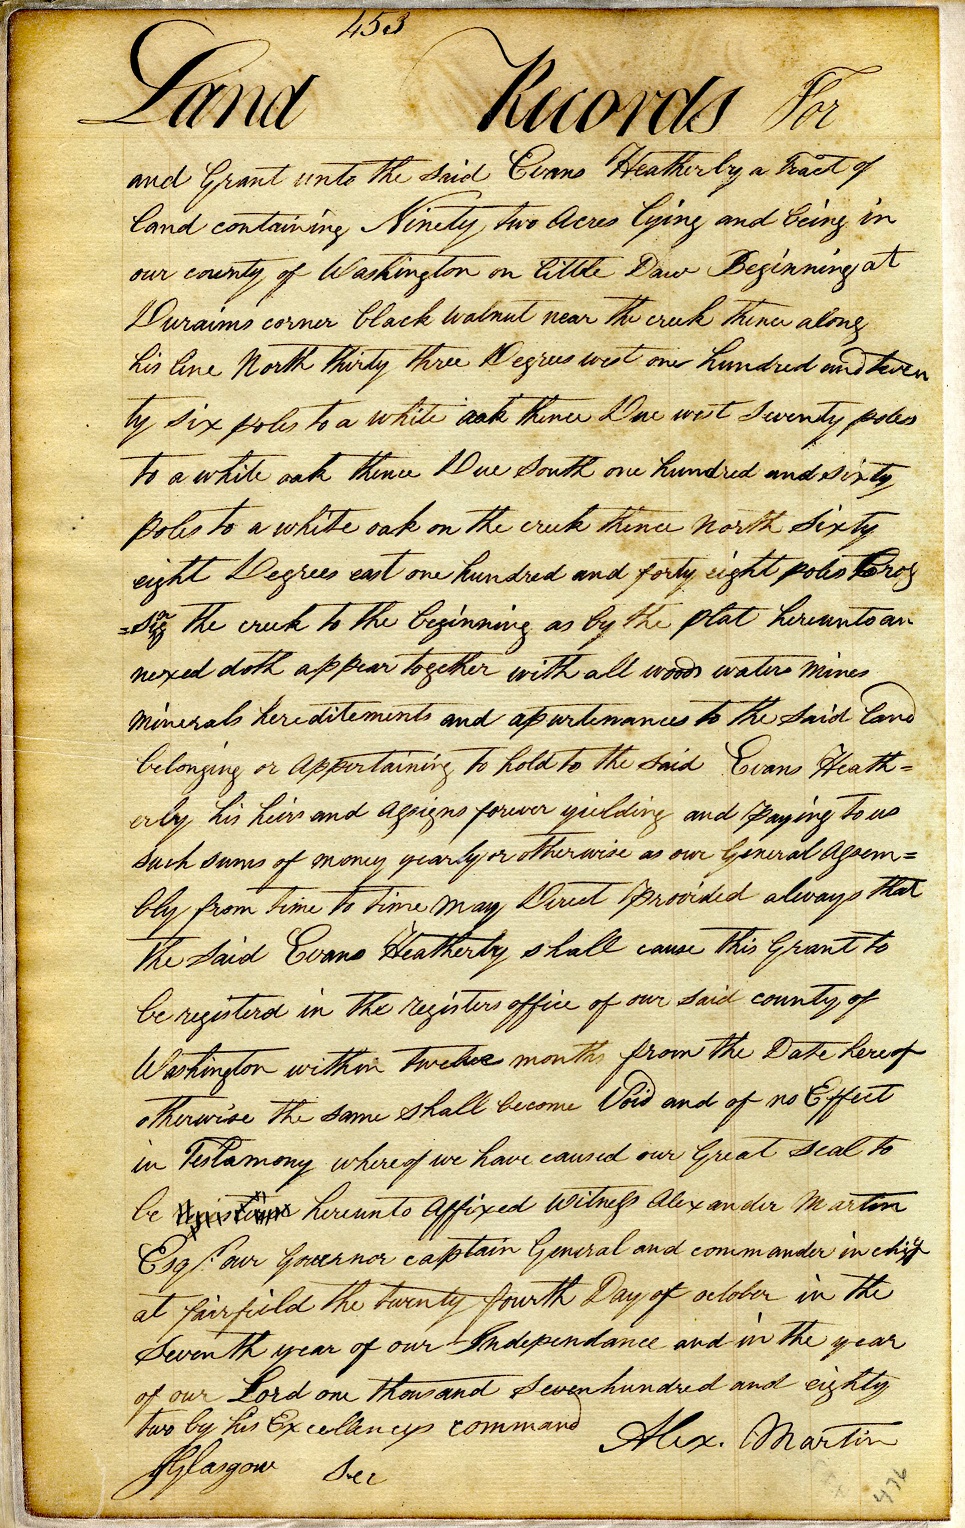 453
Land Records For
and Grant unto the said Evans Heatherby a Tract of
land containing Ninety two Acres lying and being in
our county of Washington on little Daw Beginning at
Duraims corner black walnut near the creek thence along
his line North thirty three Degrees west one hundred and seven
ty six poles to a white oak thence Due west seventy poles
to a white oak thence Due South one hundred and sixty
poles to a white oak on the creek thence North sixty
eight Degrees east one hundred and forty eight poles Cros
=sing the creek to the beginning as by the plat hereunto an
nexed doth appear together with all woods waters mines
minerals hereditements and apurtenances to the said land
belonging or appertaining to hold to the said Evans Heath=
erly his heirs and assigns forever yielding and paying to us
such sums of money yearly or otherwise as our General Assem=
bly from time to time may Direct Provided always that
the said Evans Heatherby shall cause this Grant to
be registerd in the registers office of our said county of
Washington within twelve months from the Date hereof
otherwise the same shall become Void and of no Effect
in Testamony whereof we have caused our Great Seal to
be hereunto affixed Witness Alexander Martin
Esqr. our Governor captain General and commander in chief
at fairfield the twenty fourth Day of october in the
Seventh year of our Independance and in the year
of our Lord one thousand Seven hundred and eighty
two by his Excellencys command
Alex. Martin
JGlasgow Sec
476